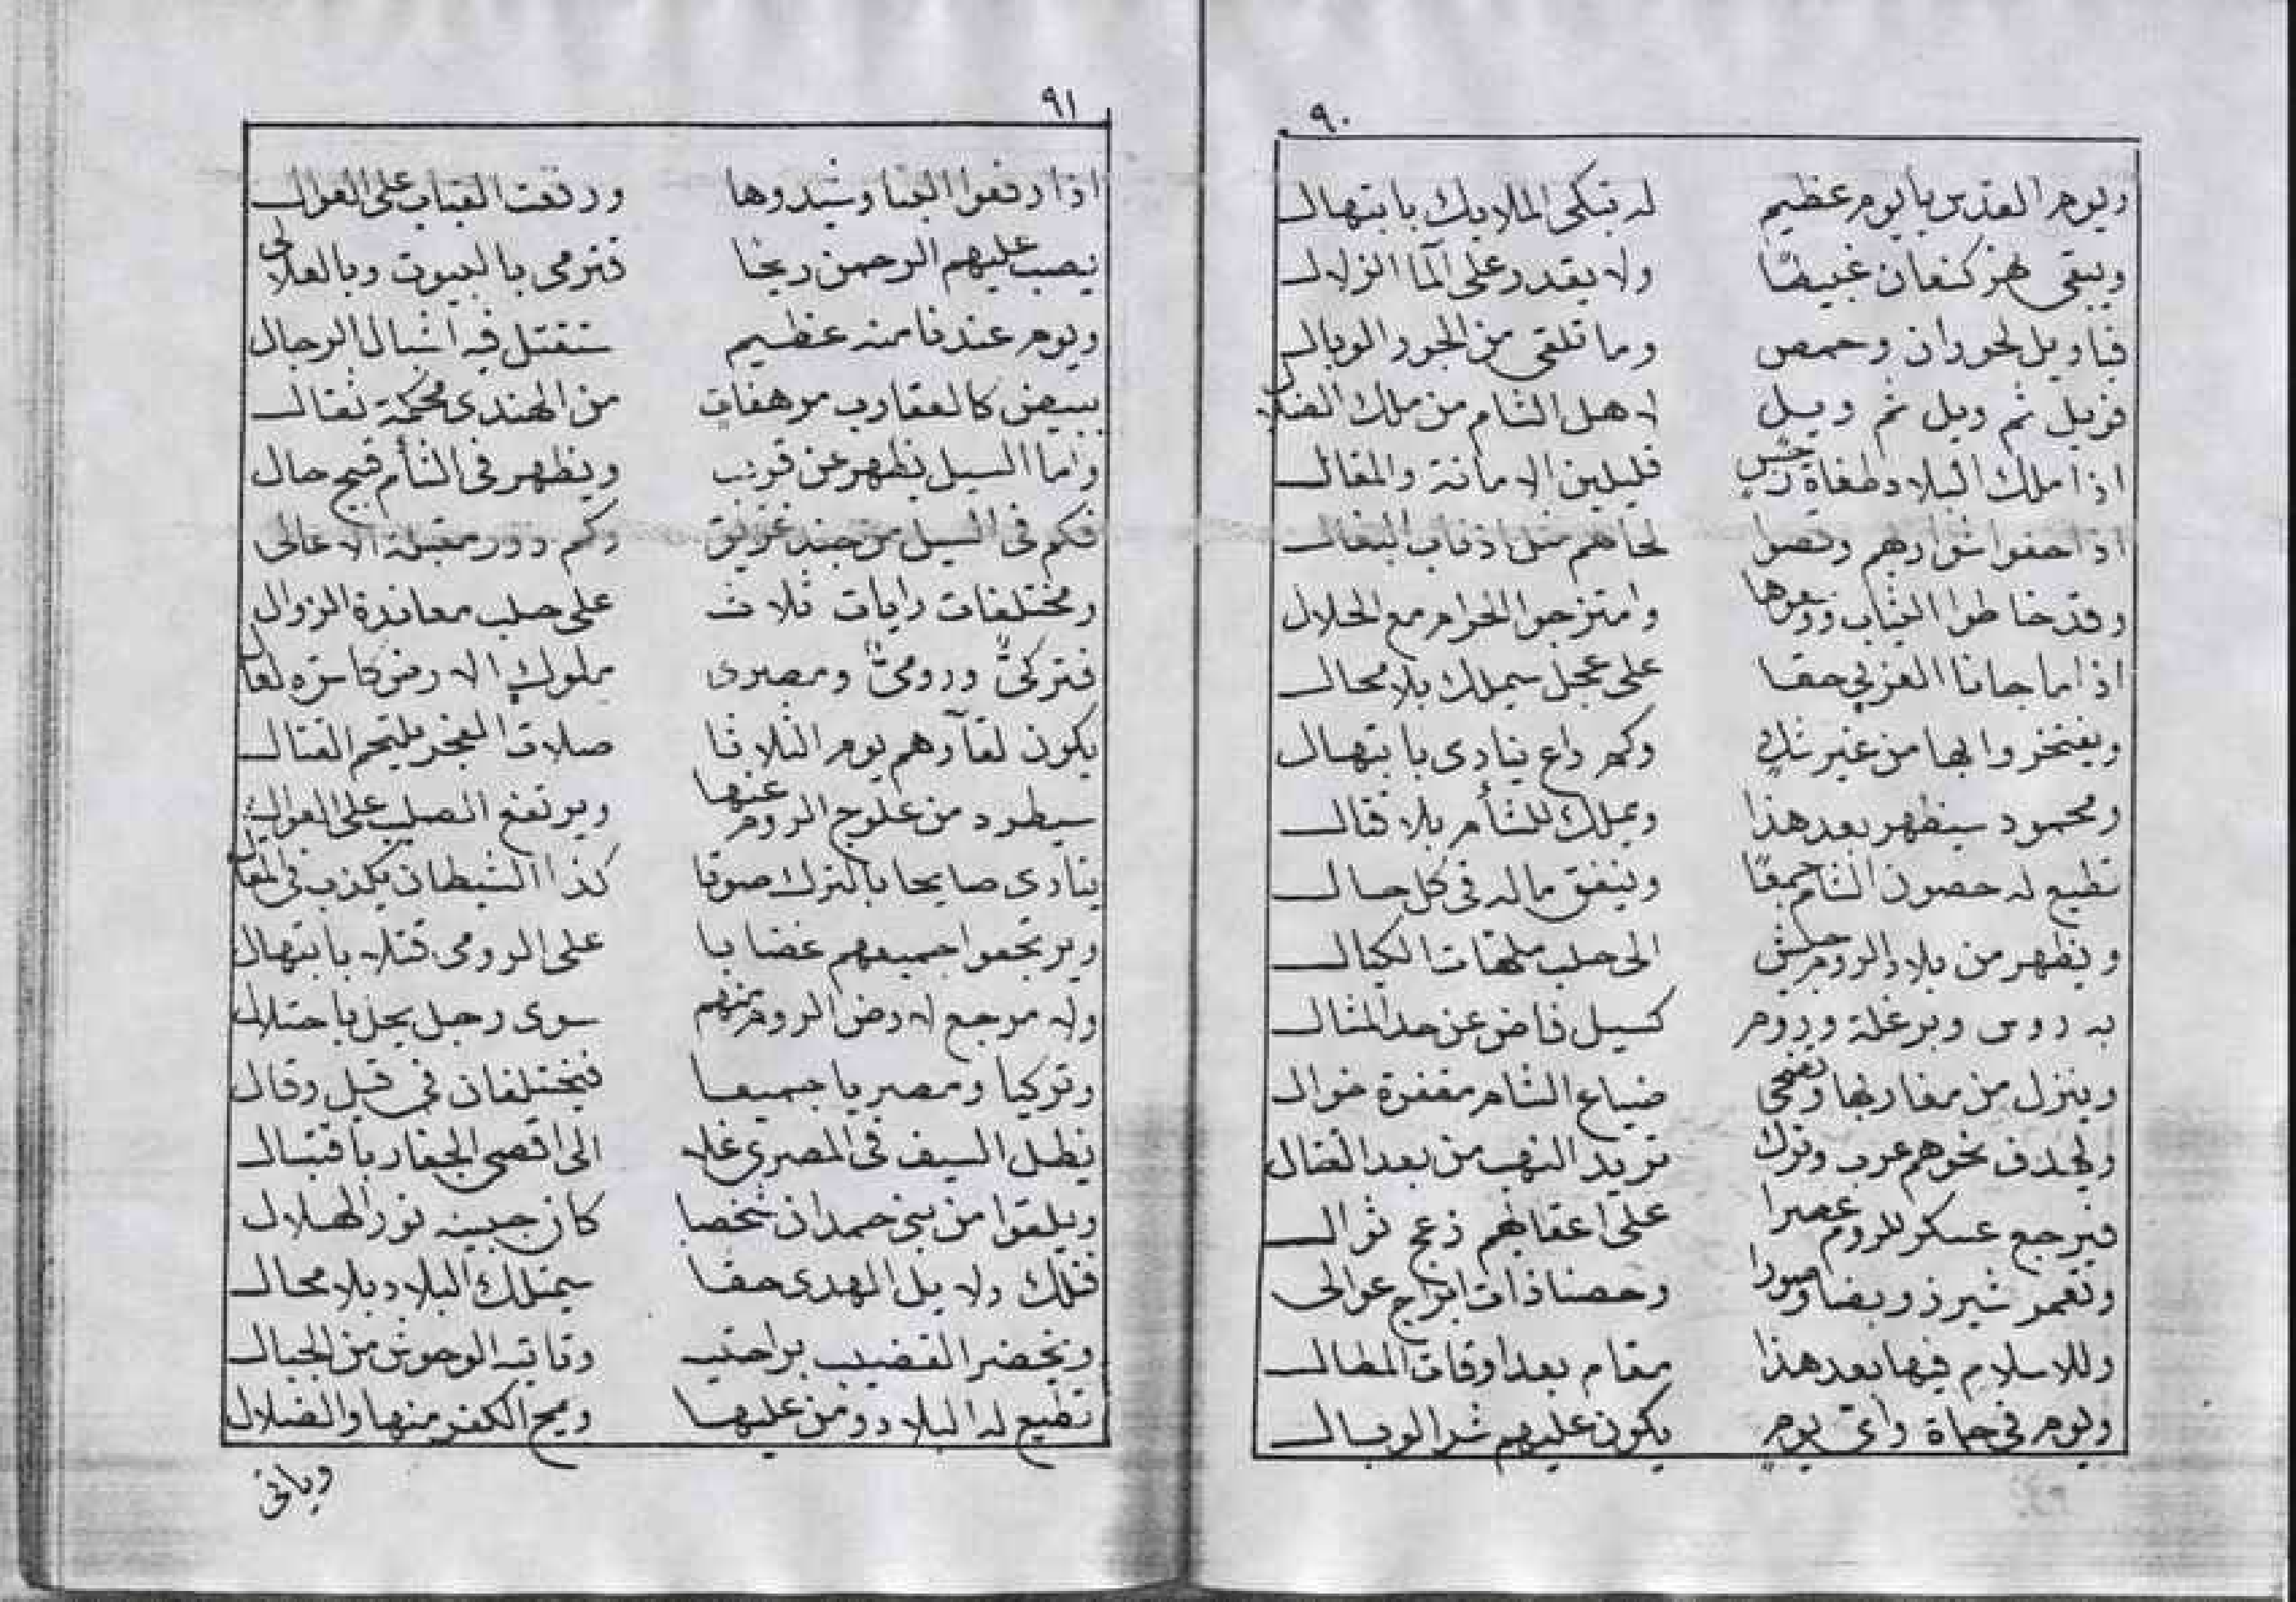 ٩٠
ويوم القدس يا يوم عظيم له تبكى الملايك بابتهال
ويبقى نهر كنعان غبيضا ولا يقدر على الما الزلال
فياويل لحوران وحمص وما تلقى من الجور الوبال
فويل ثم ويل ثم ويل لاهل الشام من ملك الضلال
اذا ملك البلاد طغاة قليلين الامانة والمقال
اذا حفوا شواربهم وقصوا لحاهم مثل اذناب البغال
وقد خاطوا الثياب وامتزجوا الحرام مع الحلال
اذا ما جانا العزبي حقا على عجل سيملك بلا محال
ويفتخروا بها من غير شك وكم داع ينادى بابتهال
ومحمود سيظهر بعد هذا ويملك للشأم بلا قتال
تطيع له حصون الشام جمعًا وينفق ماله فى كل حال
ويظهر من بلاد الروم جيش الى حلب
به روس وبرغلة وروم كسيل فاض عن حد المثال
وينزل من مغاربها وتضحى ضياع الشام مقفرة خوال
نحوهم عرب وترك تريد النهب من بعد القتال
فيرجع عسكر للروم عصرا على اعقابهم
وتعمر شيرز وحصنا ذات ابراج عوالى
وللاسلام فيها بعد هذا مقام بعد اوقات المطال
ويوم فى حماة واىّ يوم يكون عليهم شر الوبال
٩١
اذا رفعوا البنا وشيدوها ورتفعت القباب على العوال
يصب عليهم الرحمن ريحا فترمى بالبيوت وبالعلالى
ويوم عندنا منه عظيم ستقتل فيه اشبال الرجال
ببيض كالعقارب مرهفات من الهندى محكمة ثقال
واما السيل يظهر عن قريب ويظهر فى الشأم قبيح حال
فكم فى السيل من جند غريق وكم دور الاعالى
ومختلفات رايات ثلاث على حلب معاندة الزوال
فتركىٌّ ورومىٌّ ومصرى ملوك الارض
يكون لقآوهم يوم الثلاثا صلات الفجر ملتحم القتال
سيطرد من علوج الروم عنها ويرتفع الصليب على العوال
ينادى صايحا بالترك صوتا كذا الشيطان يكذب فى المقال
ويرتجعوا جميعهم غضابا على الرومى قتلا بابتهال
ولا مرجع لارض الروم منهم سوى رجل
وتركيا ومصريا جميعا فيختلفان فى قيل وقال
يظل السيف فى المصرى غلا الى اقصى الجفار باقتتال
ويلقوا من بنى حمدان شخصا كان جبينه نور الهلال
فتلك دلايل المهدى حقا سيمتلك البلاد بلا محال
ويخضر القضيب براحتيه وتاتيه الوحوش من الجبال
تطيع له البلاد ومن عليها ويمح الكفر منها والضلال
وياتى